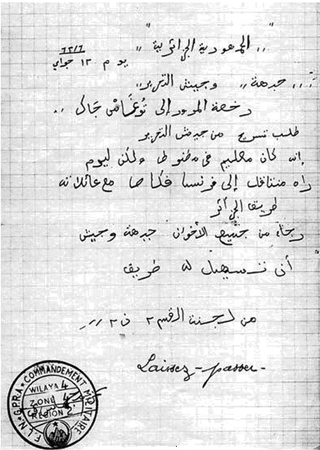 ,, الجمهودية الجزائرية ,,
٦٢/٦
يوم ١٣ جواي
,, جبهة ,, وجيش التحرير ,,
رخصة المرور إلى
طلب تسريح من جيش التحرير
كان معليم في ولكن ليوم
راه متناقل إلى فرنسا مع عائلاته
طريقا
رجاء من جميع الأخوان جبهة وجيش
أن تسهيل له طريقا
من لجنة القسم ٢ ن ٣
Laissez-passer
F.L.N. G.P.R.A. COMMANDEMENT MILITAIRE
WILAYA 4
ZONE
REGION